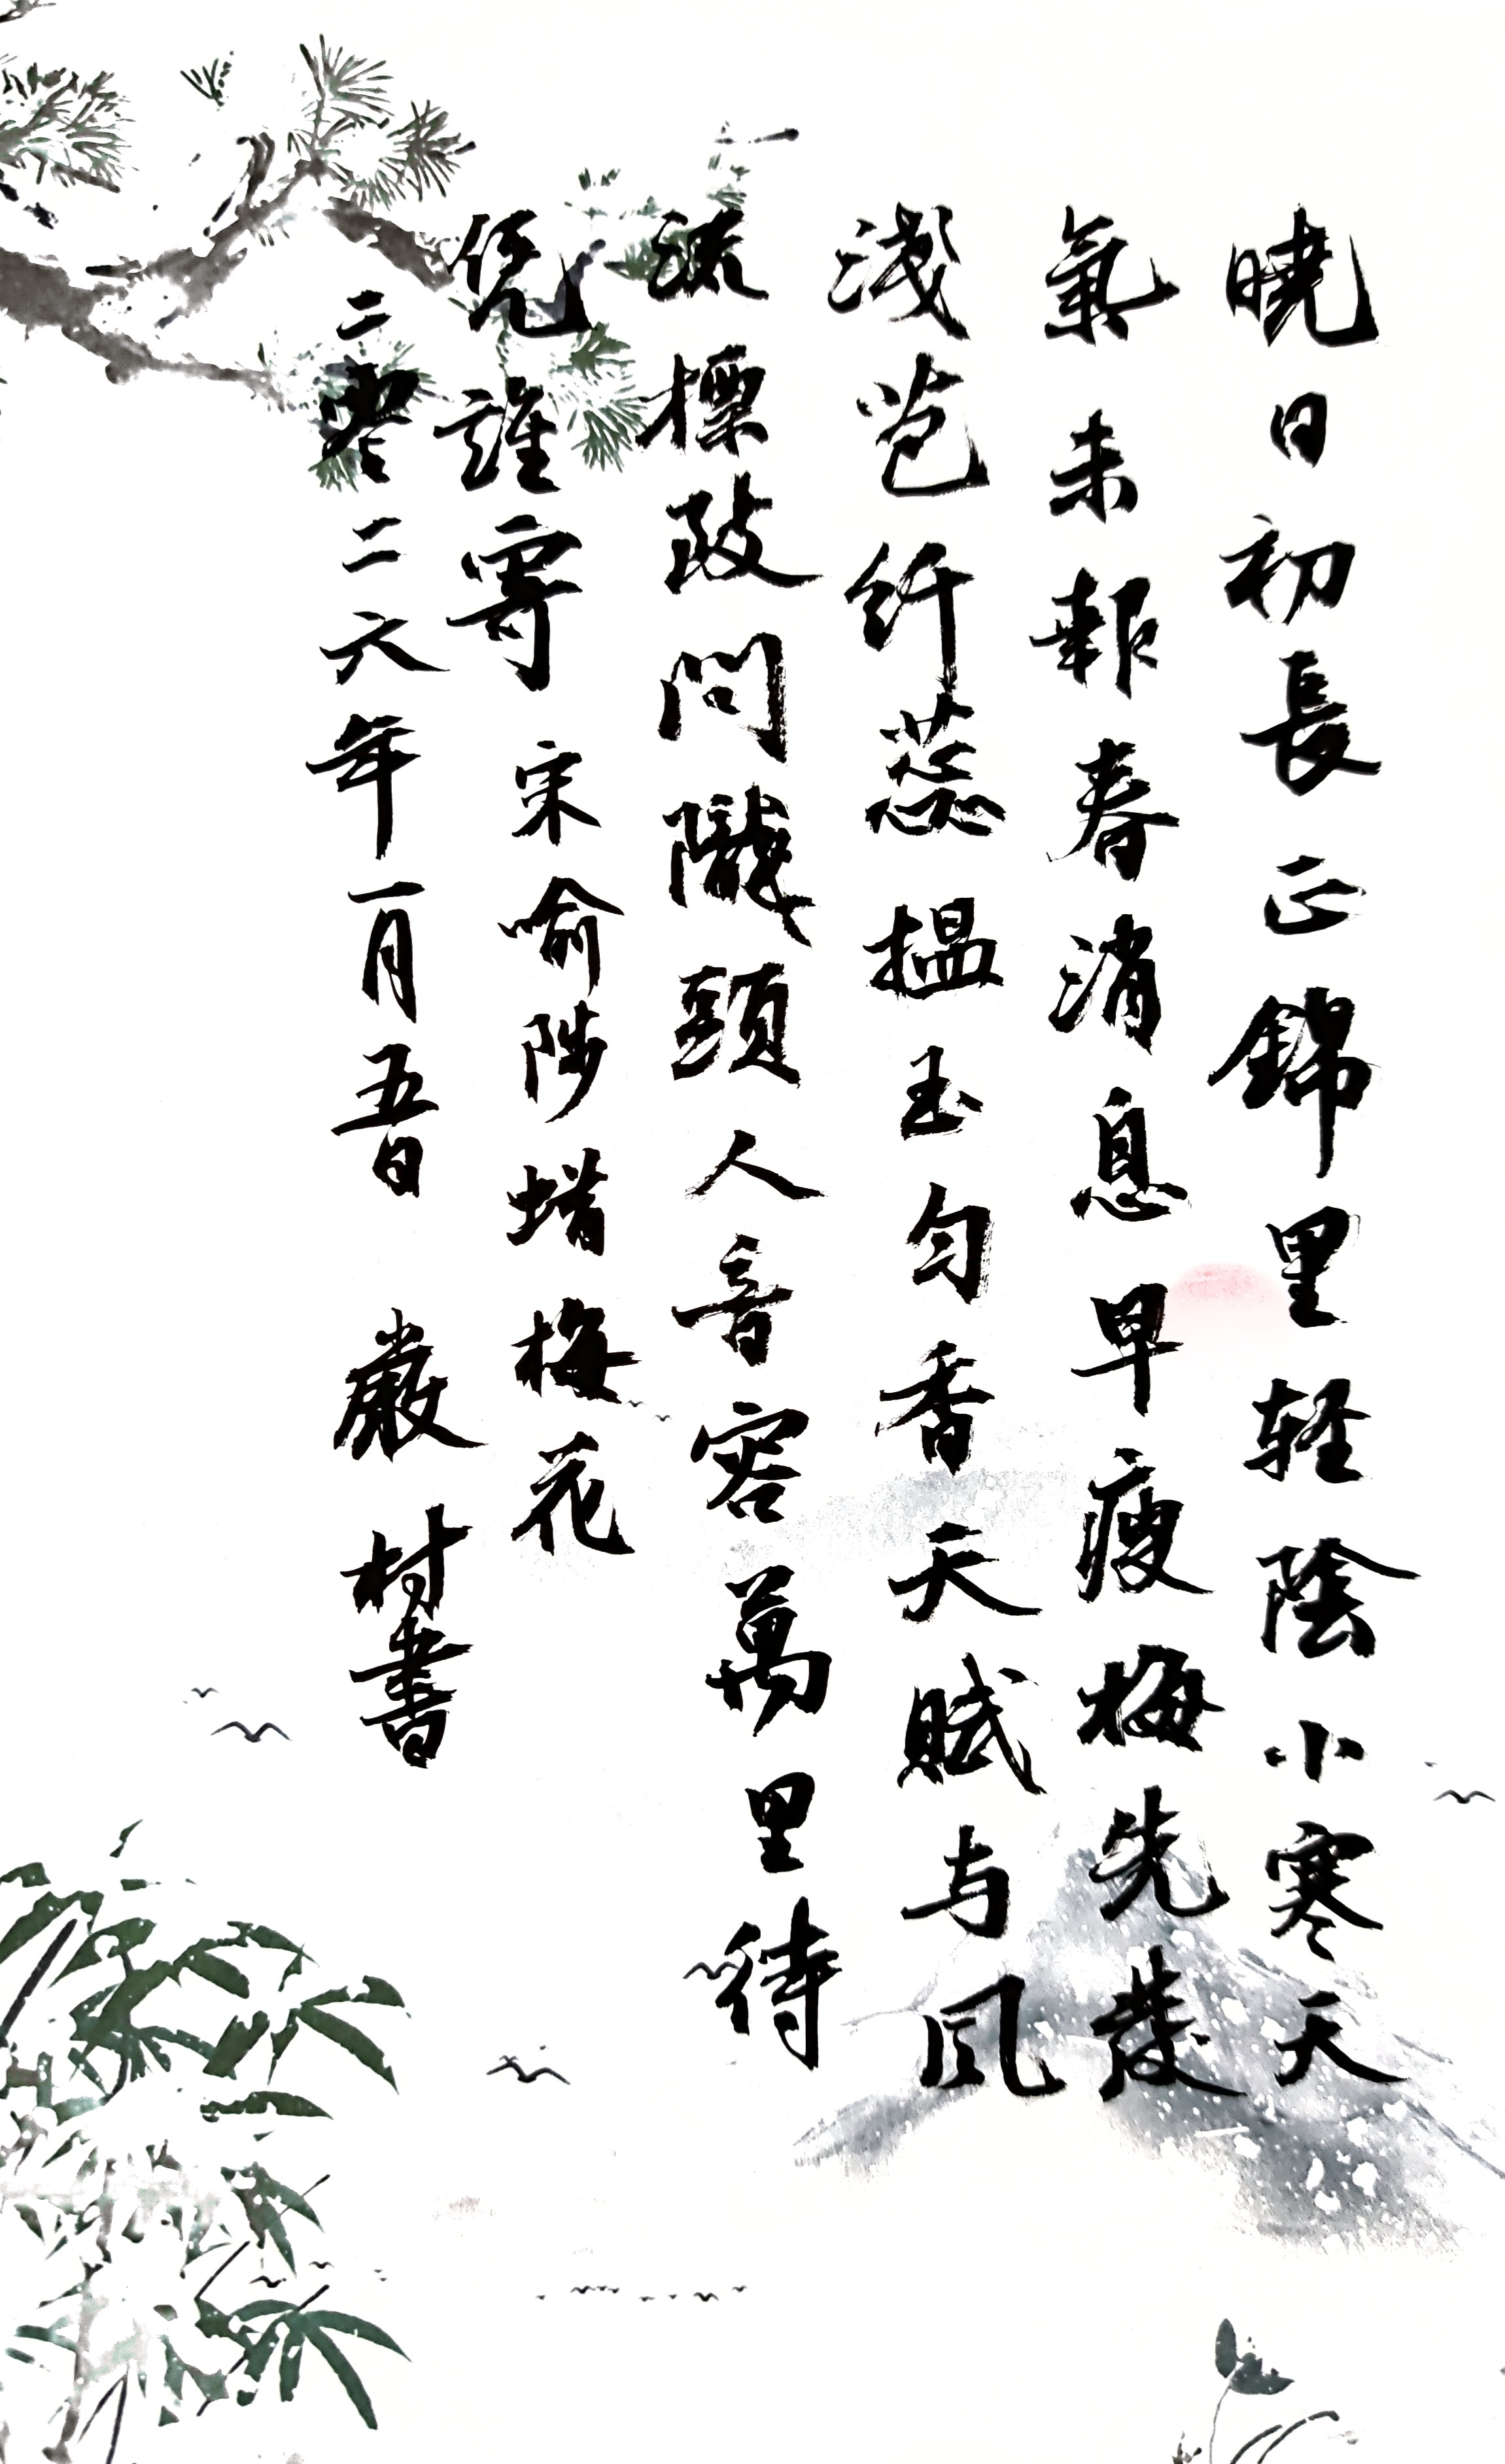 曉日初長正錦里轻陰小寒天
氣未報春消息早瘦梅先發
淺苞纤蕊搵玉匀香天賦与風
流標致問隴頭人音容萬里待
凭誰寄 宋喻陟蜡梅花
二零二六年一月五日 嚴村書